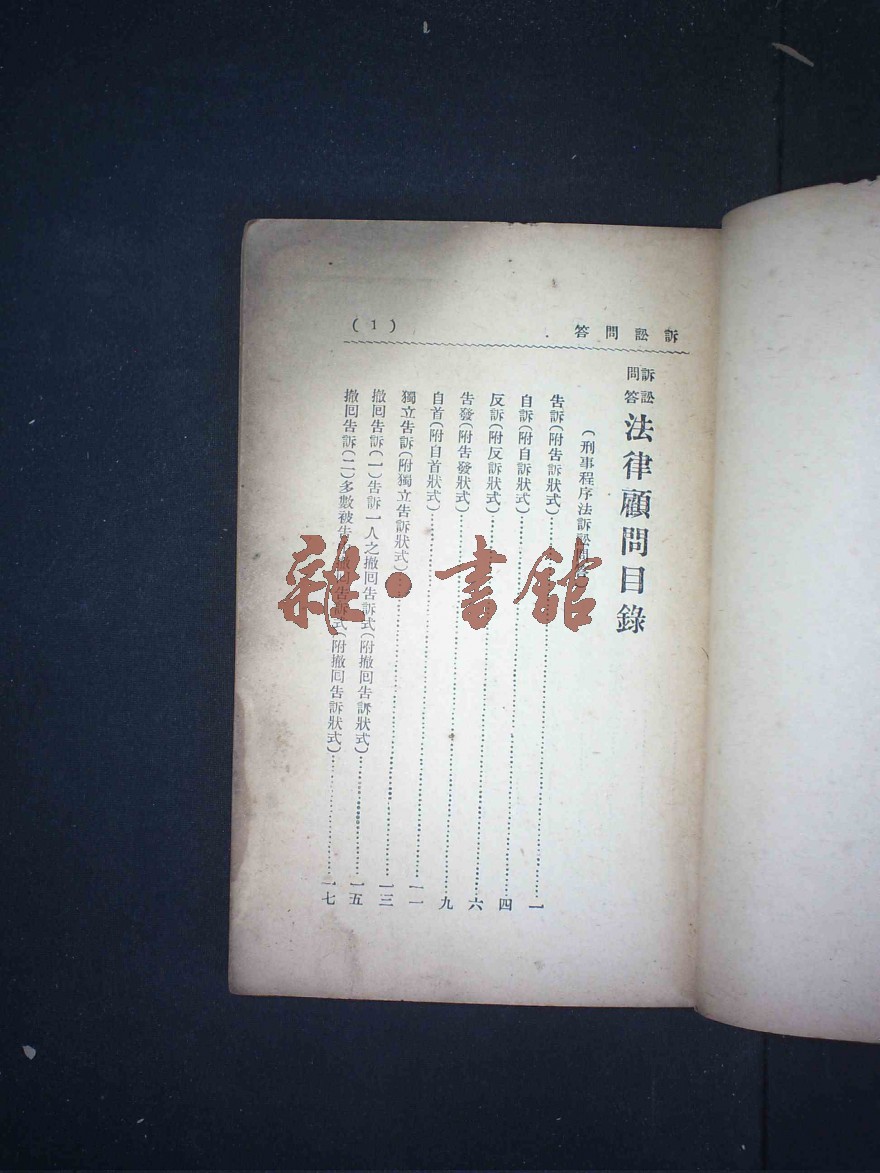 訴訟問答
(1)
訴訟問答 法律顧問目錄
(刑事程序法訴訟問答)
告訴(附告訴狀式)……一
自訴(附自訴狀式)……四
反訴(附反訴狀式)……六
告發(附告發狀式)……九
自首(附自首狀式)……一一
獨立告訴(附獨立告訴狀式)……一三
撤回告訴(一)告訴一人之撤回告訴式(附撤回告訴狀式)……一五
撤回告訴(二)多數被告撤回告訴式(附撤回告訴狀式)……一七
雜·書館